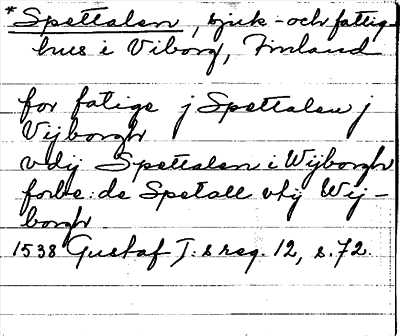 *Spettalen, sjuk- och fattig-
hus i Viborg, Finland
for fatige j Spettalen j
Vijborgh
vdij Spettalen i Wijborgh
forbe: de Spetall vtij Wij-
borgh
1538 Gustaf I:s reg. 12, s. 72.